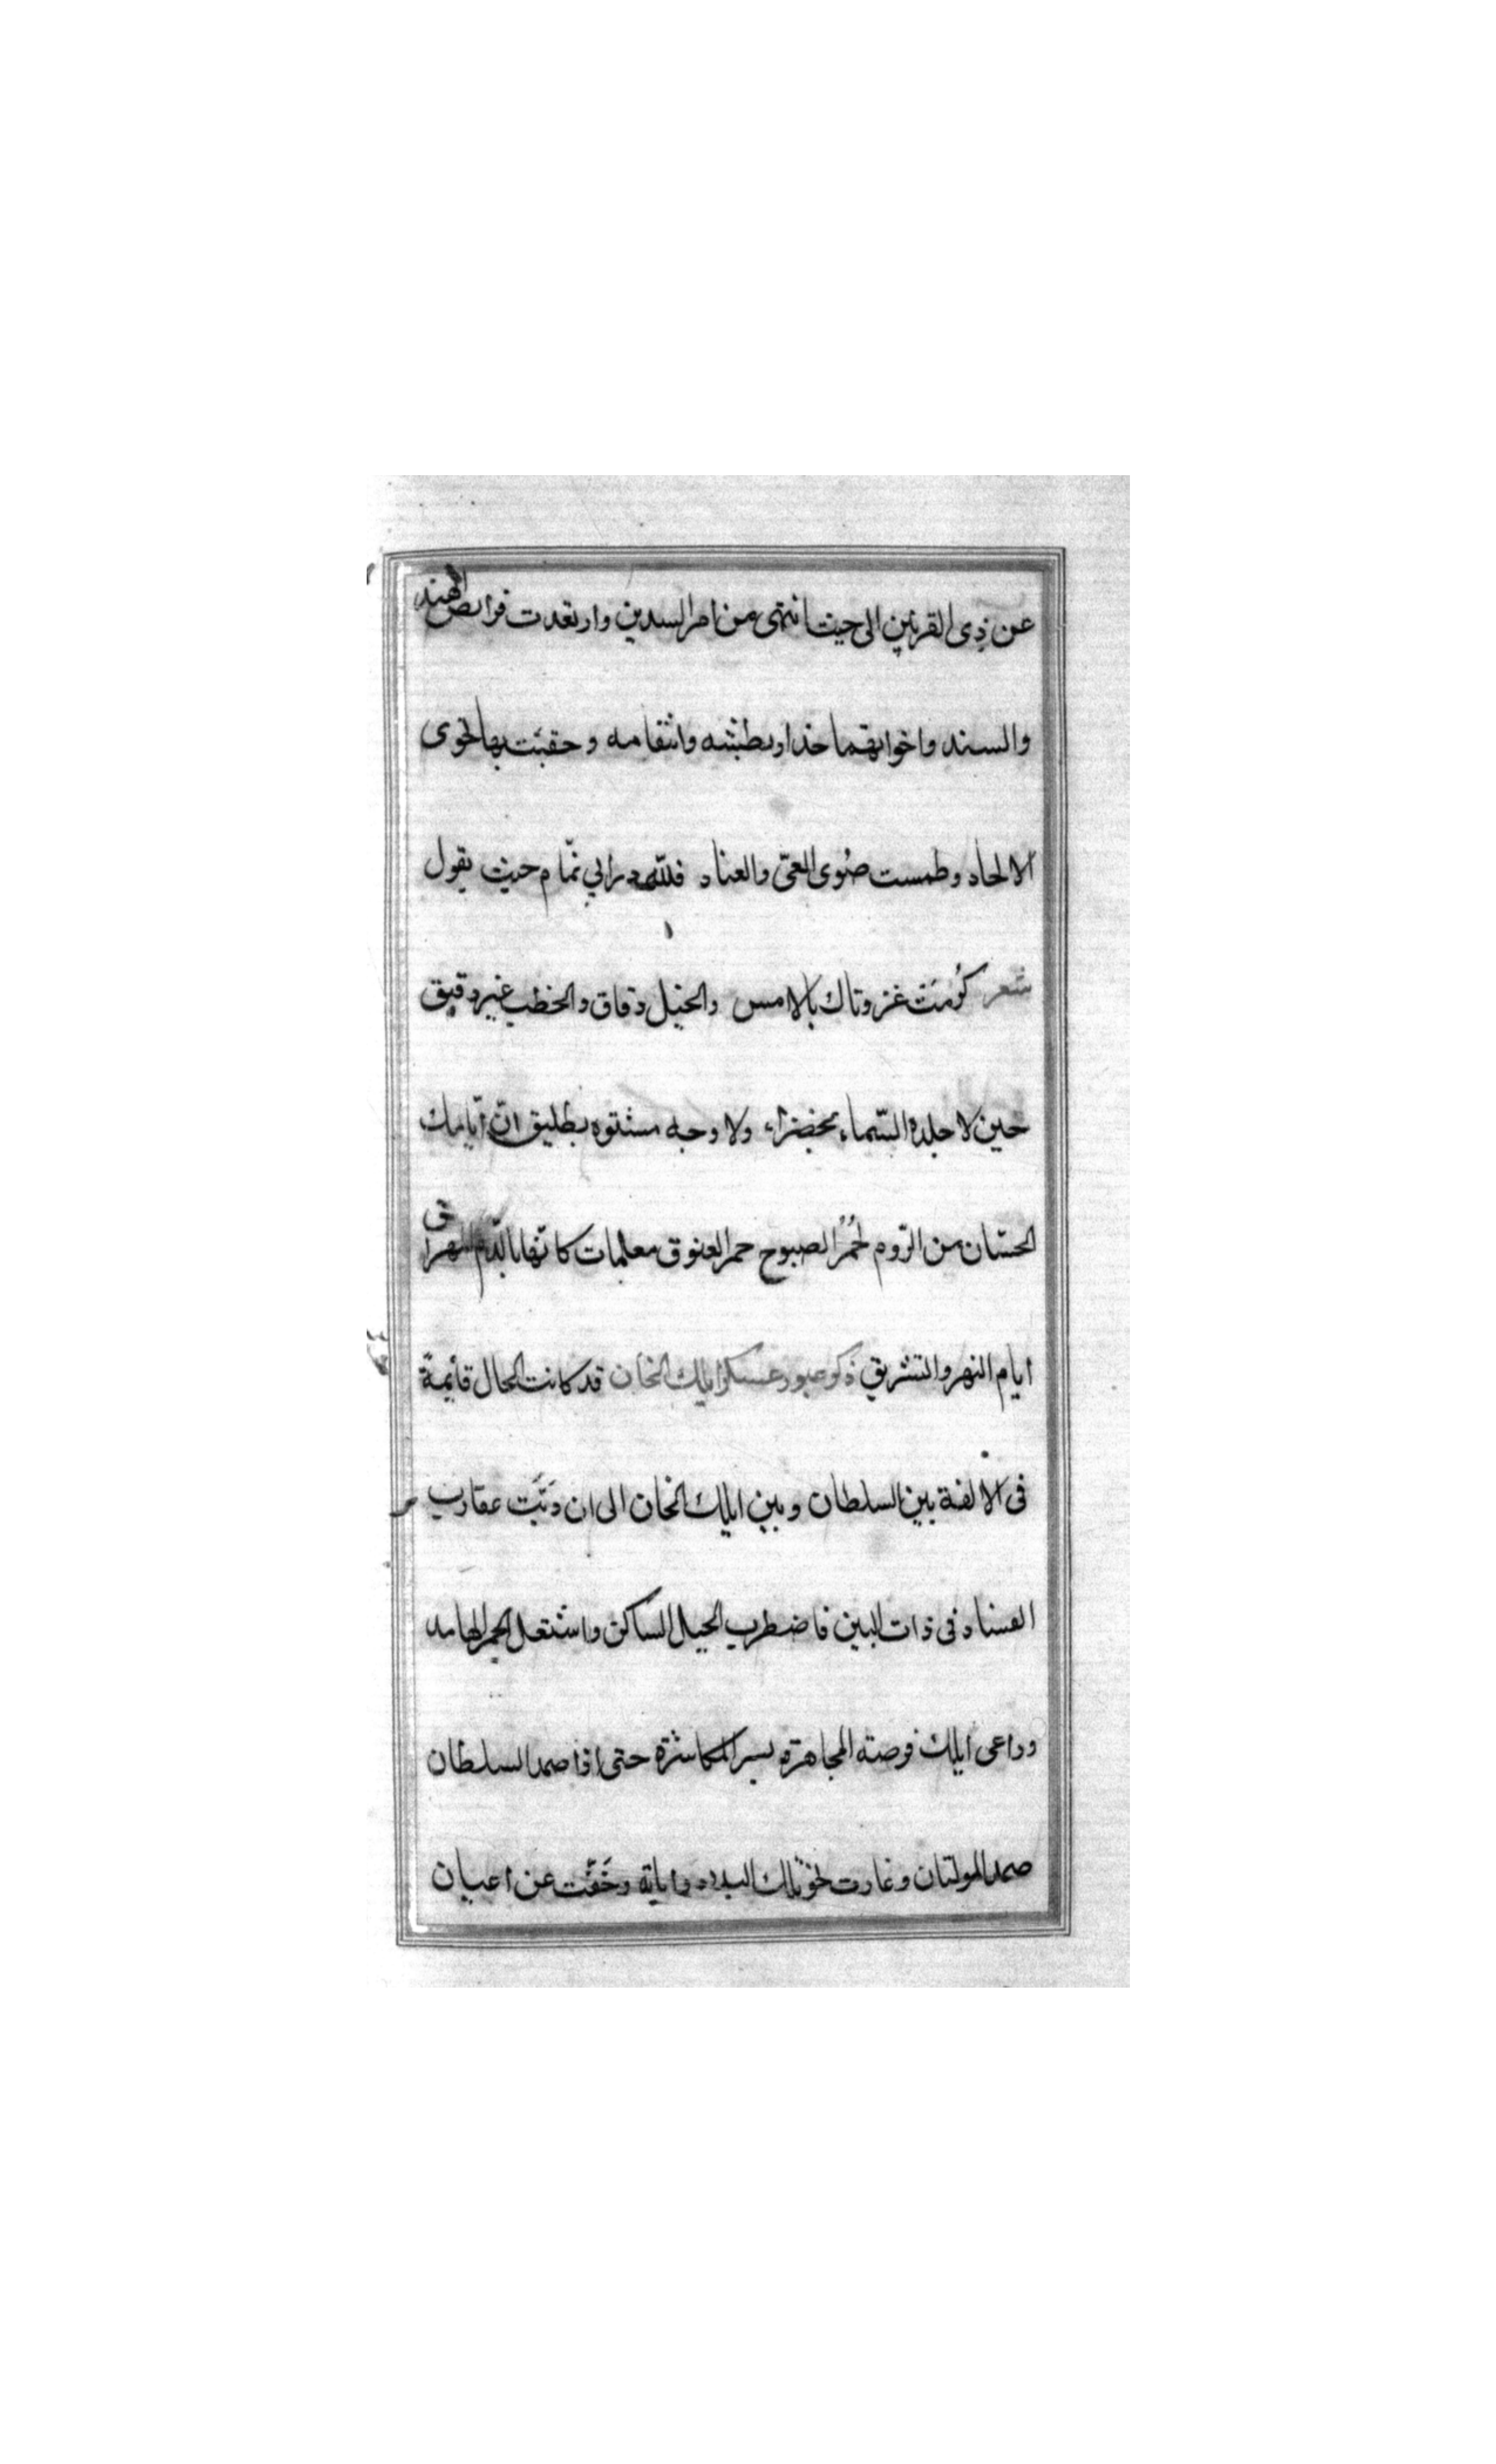 عن ذى القرنين الى حيث انتهى من امر السدين وارتعدت فرايص الهند
والسند واخواتهما حذار بطشه وانتقامه وحقبت بها نحوى
الالحاد وطمست صُوى الغىّ والعناد فللّه در ابي تمّام حيث يقول
شعر كُرمَت غزوتاك بالامس والخيل دقاق والخطب غير دقيق
حين لا جلدة السّماء بخضراء ولا وجه مشتوه بطليق انّ ايّامك
الحسّان من الرّوم لحُمُر الصبوح حمر الغبوق معلمات كانّها بالدّم المهراق
ايام النهر والتشريق ذكر عبور عسكر ايلك الخان قد كانت الحال قائمةً
فى الالفة بين السلطان وبين ايلك الخان الى ان دَبَّت عقارب
الفساد فى ذات البين فاضطرب الحبل الساكن واشتعل الجمر الهامد
وراعى ايلك فرصته المجاهرة بسر المكاشرة حتى اذا صمد السلطان
صمد المولتان وغارت نحو تلك البدد راياته وخَفَّت عن اعيان